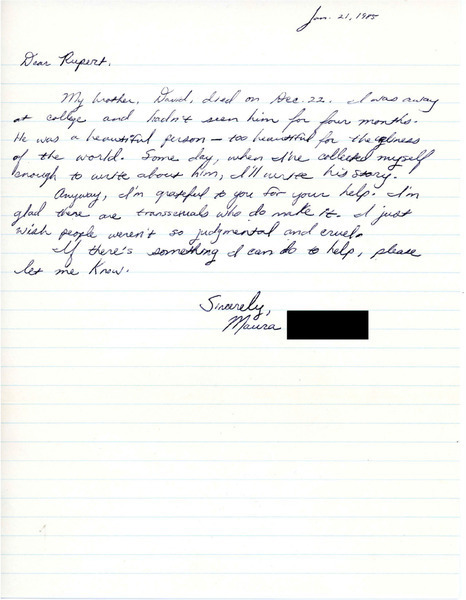 Jan. 21, 1985
Dear Rupert,
My brother, David, died on Dec. 22. I was away
at college and hadn't seen him for four months.
He was a beautiful person — too beautiful for the ugliness
of the world. Some day, when I've collected myself
enough to write about him, I'll write his story.
Anyway, I'm grateful to you for your help. I'm
glad there are transsexuals who do make it. I just
wish people weren't so judgmental and cruel.
If there's something I can do to help, please
let me know.
Sincerely,
Maura